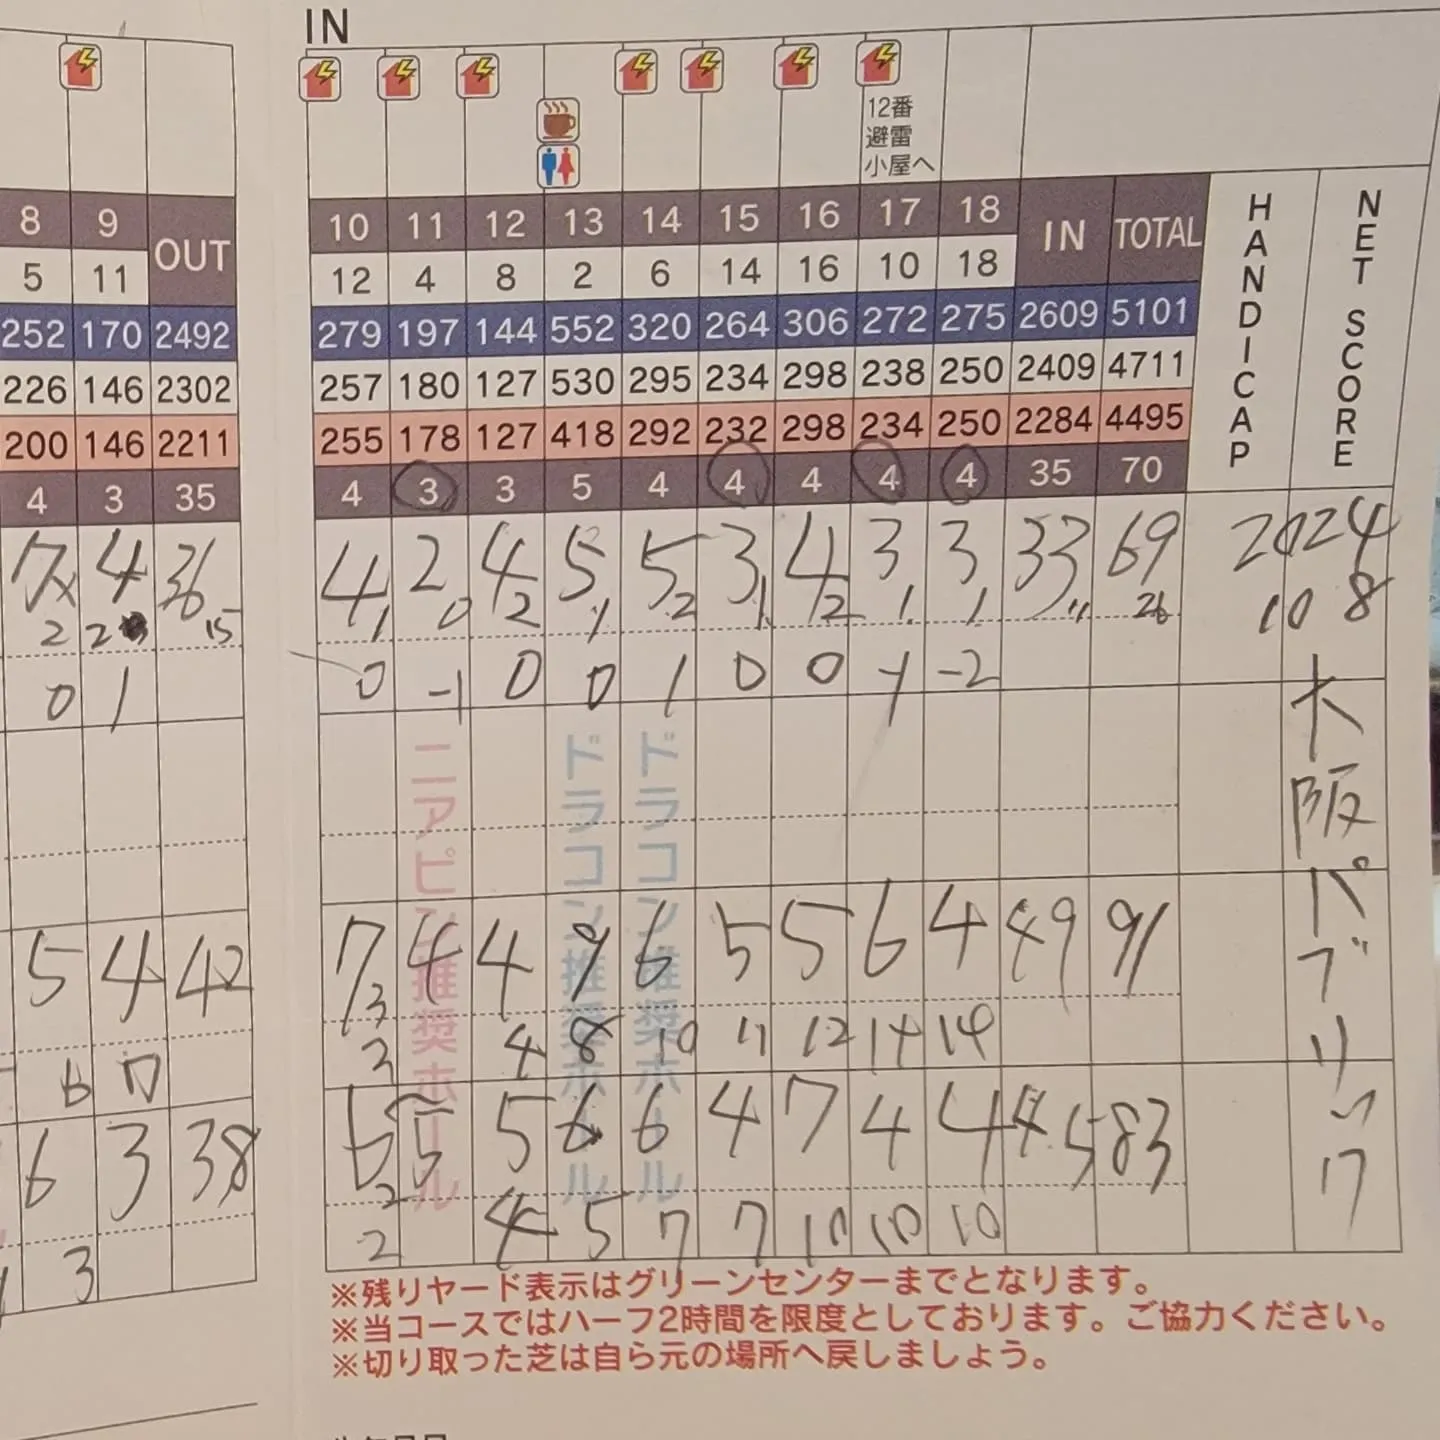 IN
12番
避雷
小屋へ
8 9 OUT 10 11 12 13 14 15 16 17 18 IN TOTAL HANDICAP NET SCORE
5 11 12 4 8 2 6 14 16 10 18
252 170 2492 279 197 144 552 320 264 306 272 275 2609 5101
226 146 2302 257 180 127 530 295 234 298 238 250 2409 4711
200 146 2211 255 178 127 418 292 232 298 234 250 2284 4495
4 3 35 4 3 3 5 4 4 4 4 4 35 70
7 4 36 4 2 4 5 5 3 4 3 3 33 69 2024
2 2 15 1 0 2 1 2 1 2 1 1 11 26 10 8
0 1 0 -1 0 0 1 0 0 -1 -2
大阪パブリック
ニアピン推奨ホール
ドラコン推奨ホール
ドラコン推奨ホール
5 4 42 7 4 4 9 6 5 5 6 4 49 91
3
6 7 3 4 8 10 11 12 14 14
6 3 38 6 5 5 6 6 4 7 4 4 45 83
2
3 2 4 5 7 7 10 10 10
※残りヤード表示はグリーンセンターまでとなります。
※当コースではハーフ2時間を限度としております。ご協力ください。
※切り取った芝は自ら元の場所へ戻しましょう。